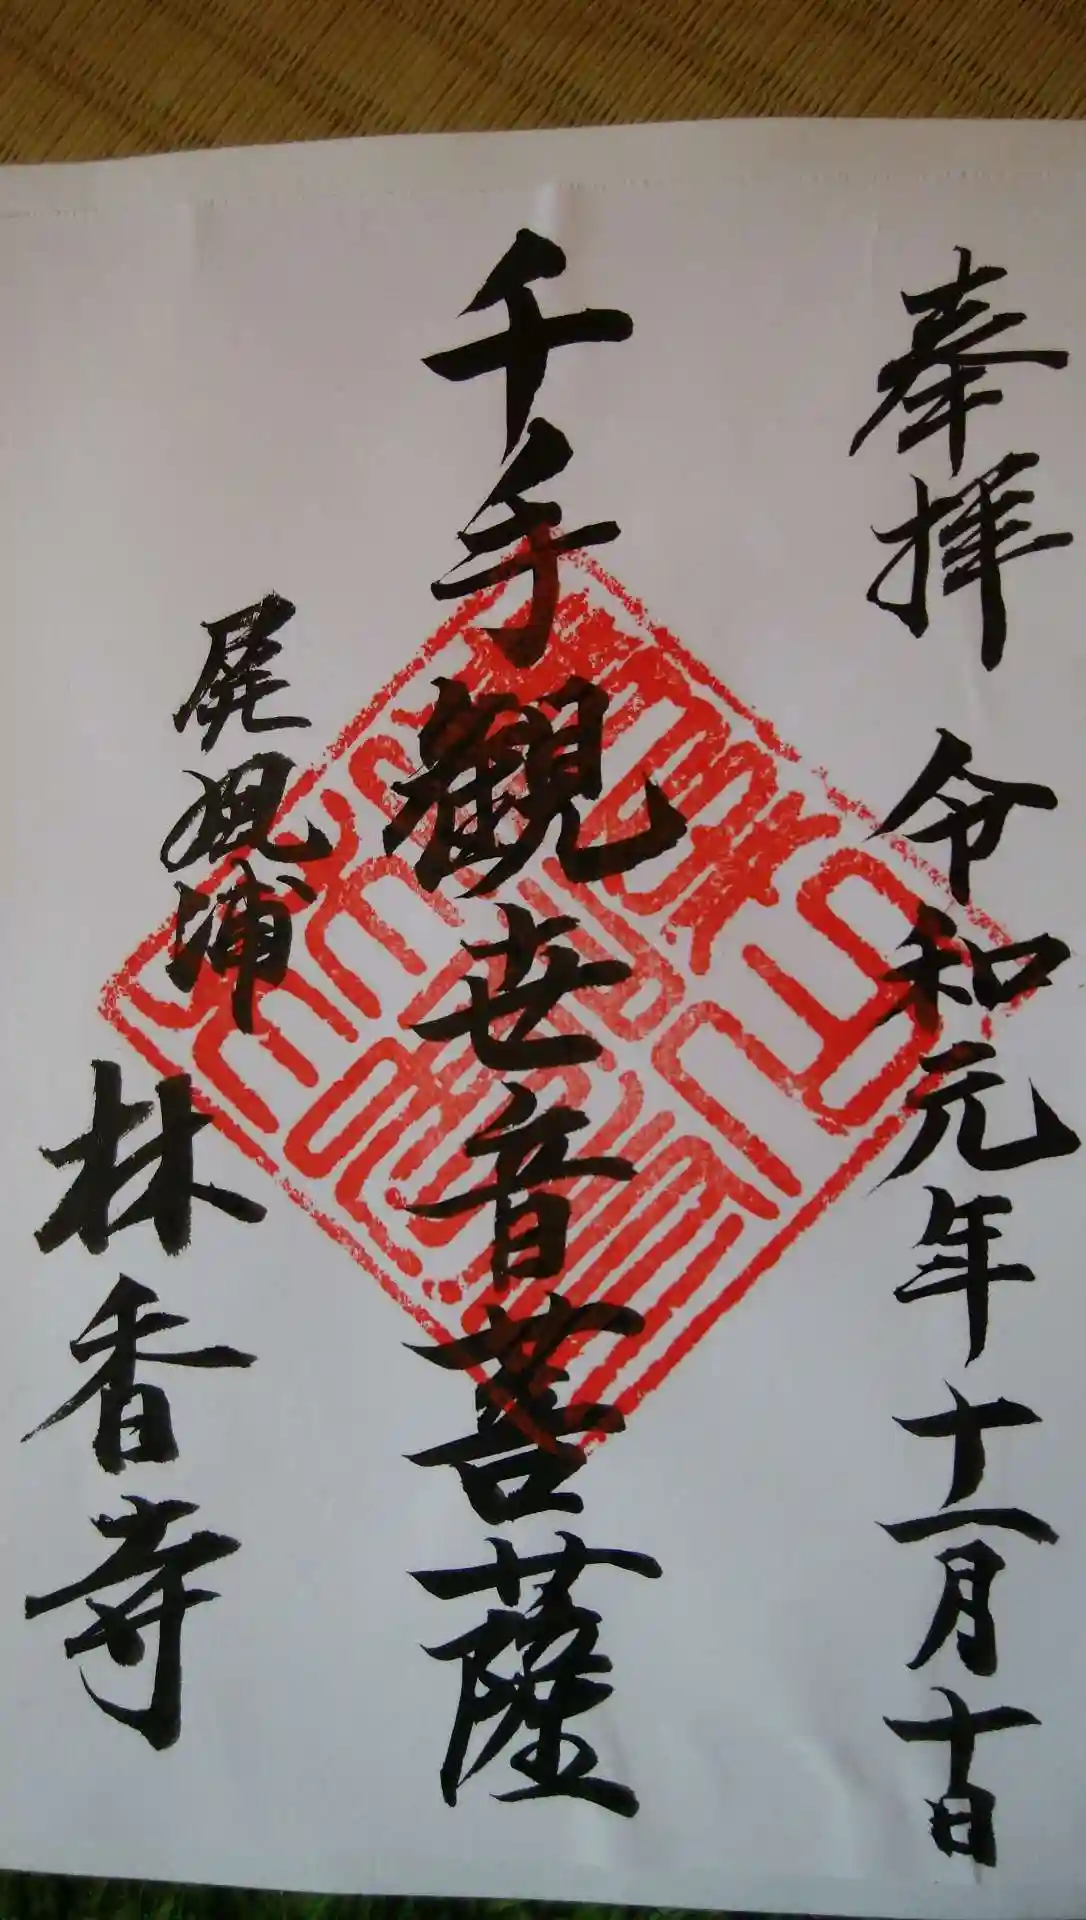 奉拜 令和元年十一月十日
千手観世音菩薩
林香寺